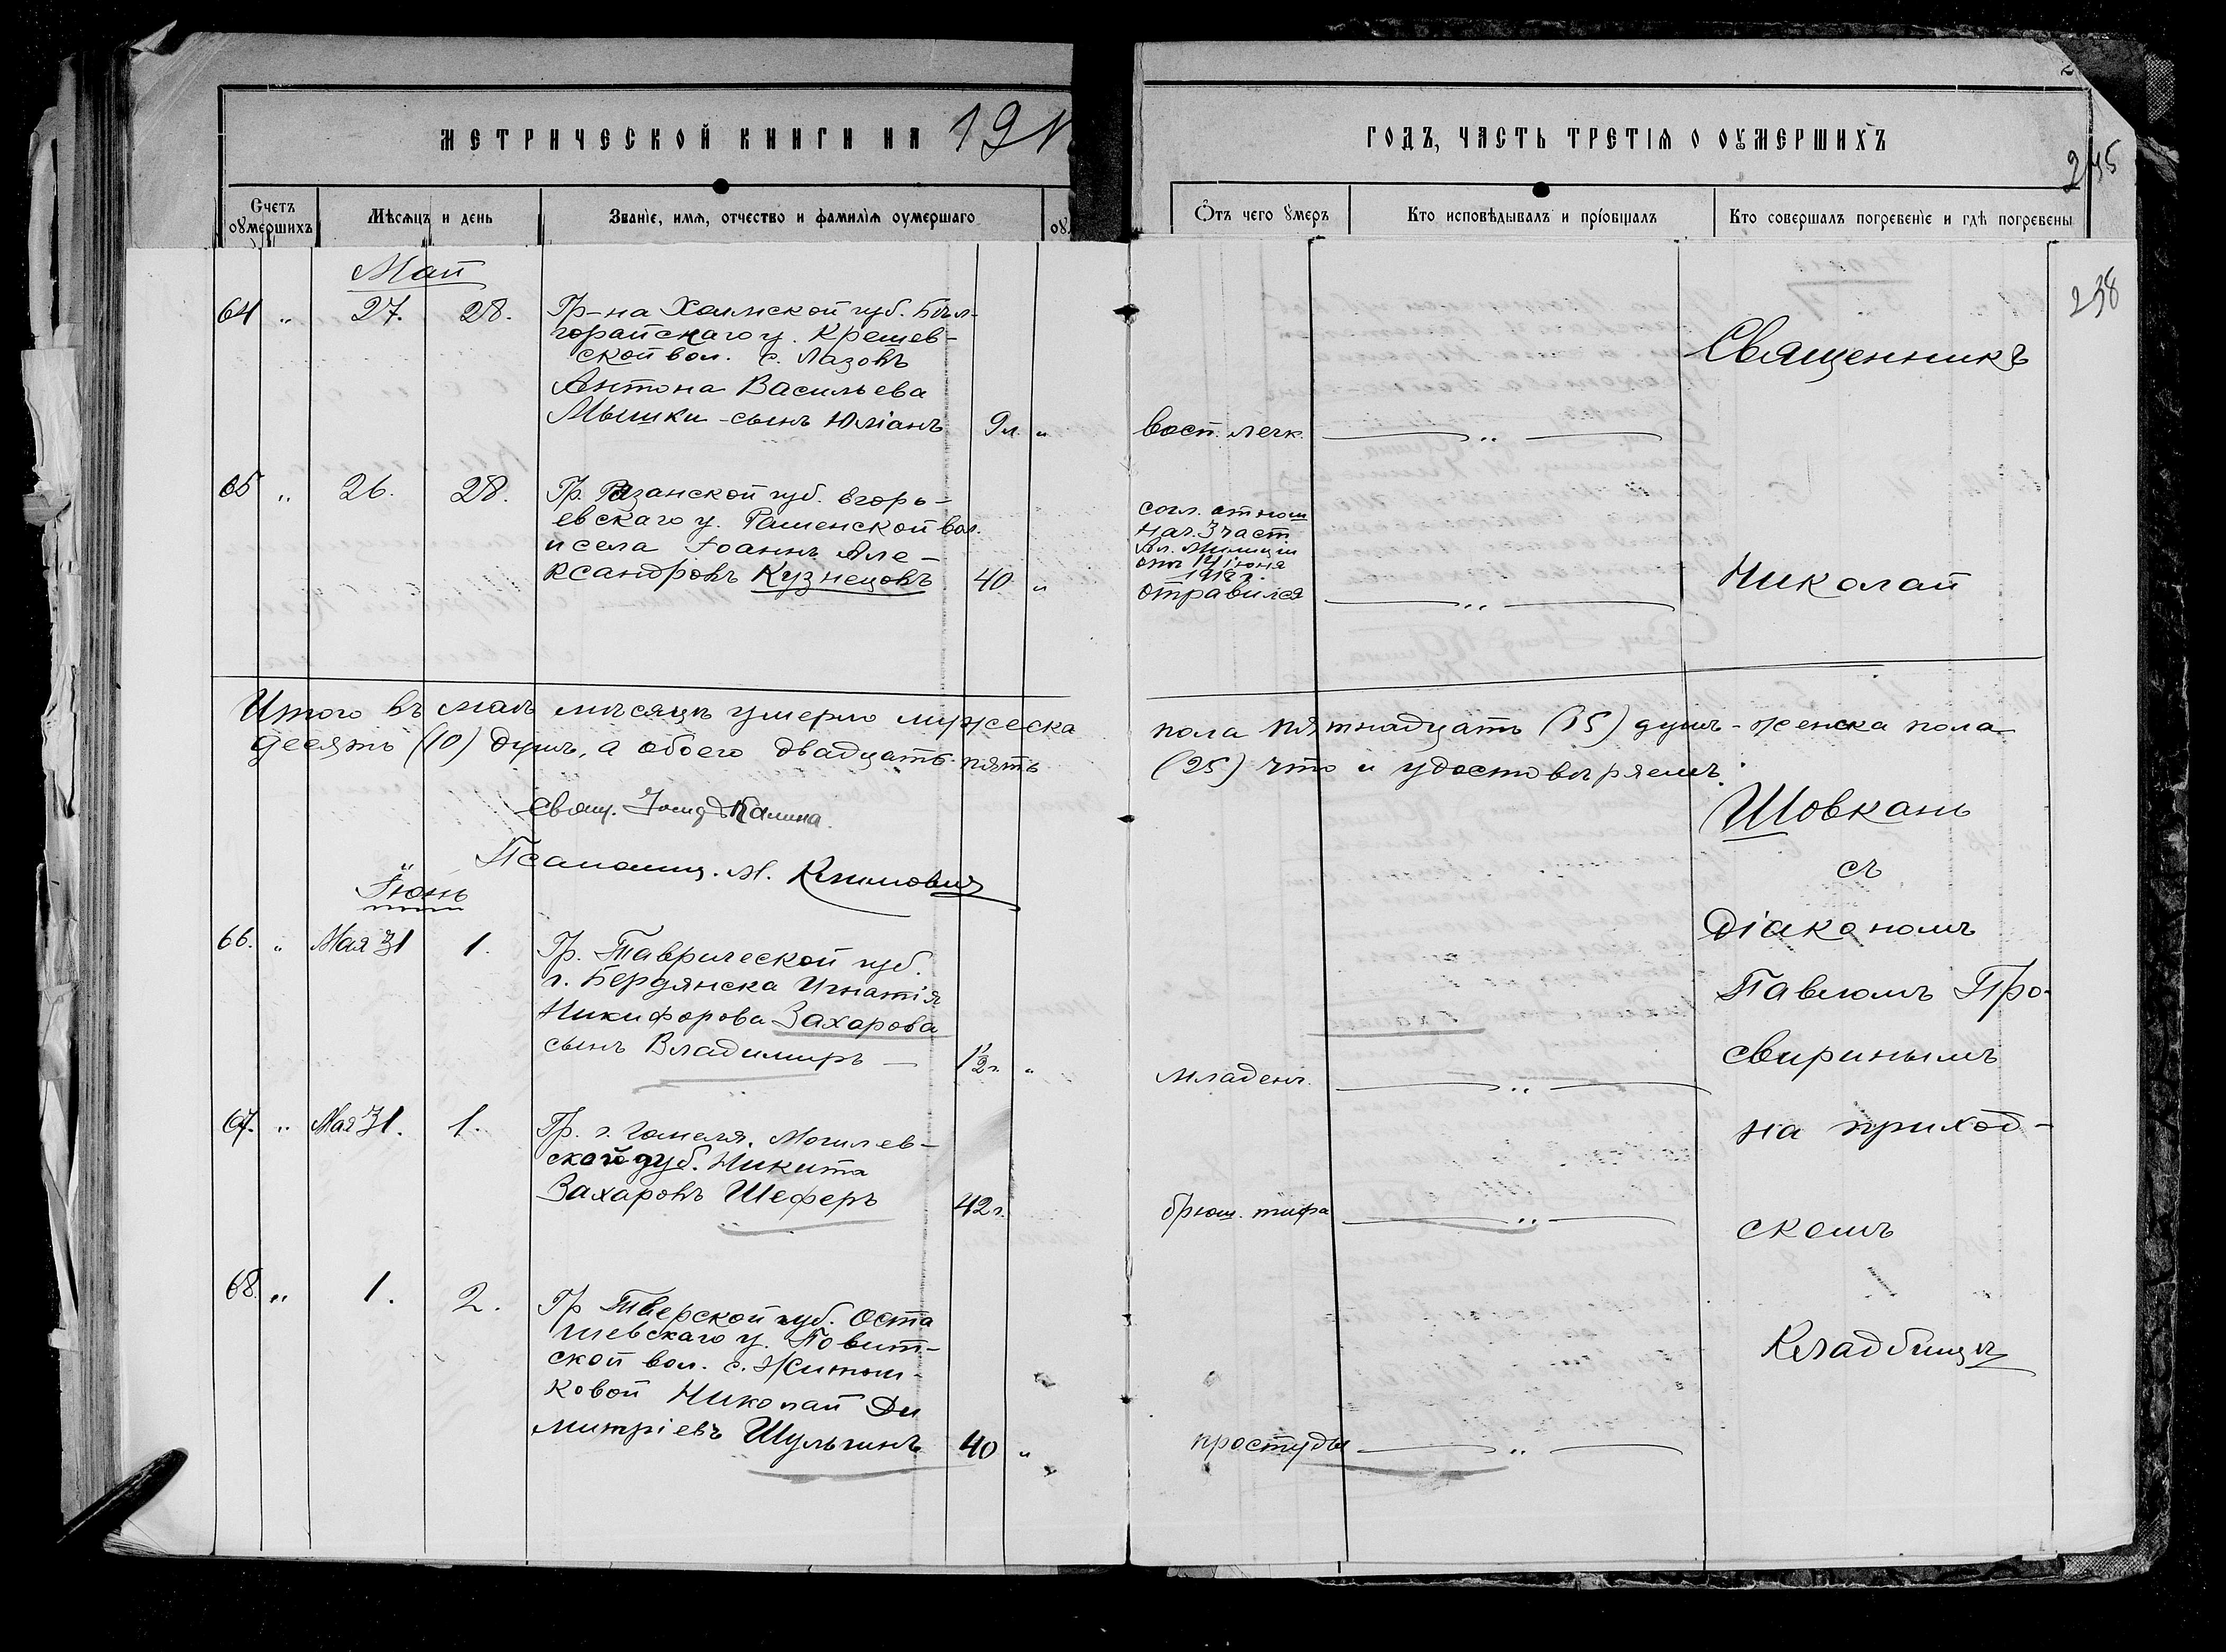 МЕТРИЧЕСКОЙ КНИГИ НА 191
ГОДЪ, ЧАСТЬ ТРЕТІЯ О ОУМЕРШИХЪ
245
Счетъ оумершихъ
Мѣсяцъ и день
Званіе, имя, отчество и фамилія оумершаго
Отъ чего умеръ
Кто исповѣдывалъ и пріобщалъ
Кто совершалъ погребеніе и гдѣ погребены
238
Май
64 „ 27. 28. Гр-на Холмской губ. Бѣл-
горайскаго у. Крешев-
ской вол. с. Лазовъ
Антона Васильева
Мышки - сынъ Юліанъ 9 л. „ восп. легк. — „ —
65 „ 26. 28. Гр. Рязанской губ. Егорь-
евскаго у. Раменской вол.
и села Іоаннъ Але-
ксандровъ Кузнецовъ 40 „
согл. отнош
нач. 3 част
Вл. Милиции
отъ 14 іюня
1918 г.
отравился — „ —
Священникъ
Николай
Итого въ маѣ мѣсяцѣ умерло мужеска пола пятнадцать (15) душъ - женска пола
десять (10) душъ, а обоего двадцать пять (25) что и удостовѣряемъ:
Свящ. Іоаннъ Калина.
Псаломщ. М. Климовичъ
Іюнь
66. „ Мая 31 1. Гр. Таврической губ.
г. Бердянска Игнатія
Никифорова Захарова
сынъ Владимиръ — 1½ г. „ младенч. — „ —
67. „ Мая 31. 1. Гр. г. Гомеля, Могилев-
ской губ. Никита
Захаровъ Шеферъ 42 г. брюш. тифа — „ —
68. „ 1. 2. Гр Тверской губ. Оста
шевскаго у. Повит-
ской вол. с. Житош-
ковой Николай Ди
митріевъ Шульгинъ 40 „ простуды — „ —
Шовкань
съ
Діакономъ
Павломъ Про-
свиринымъ
на приход-
скомъ
Кладбищѣ